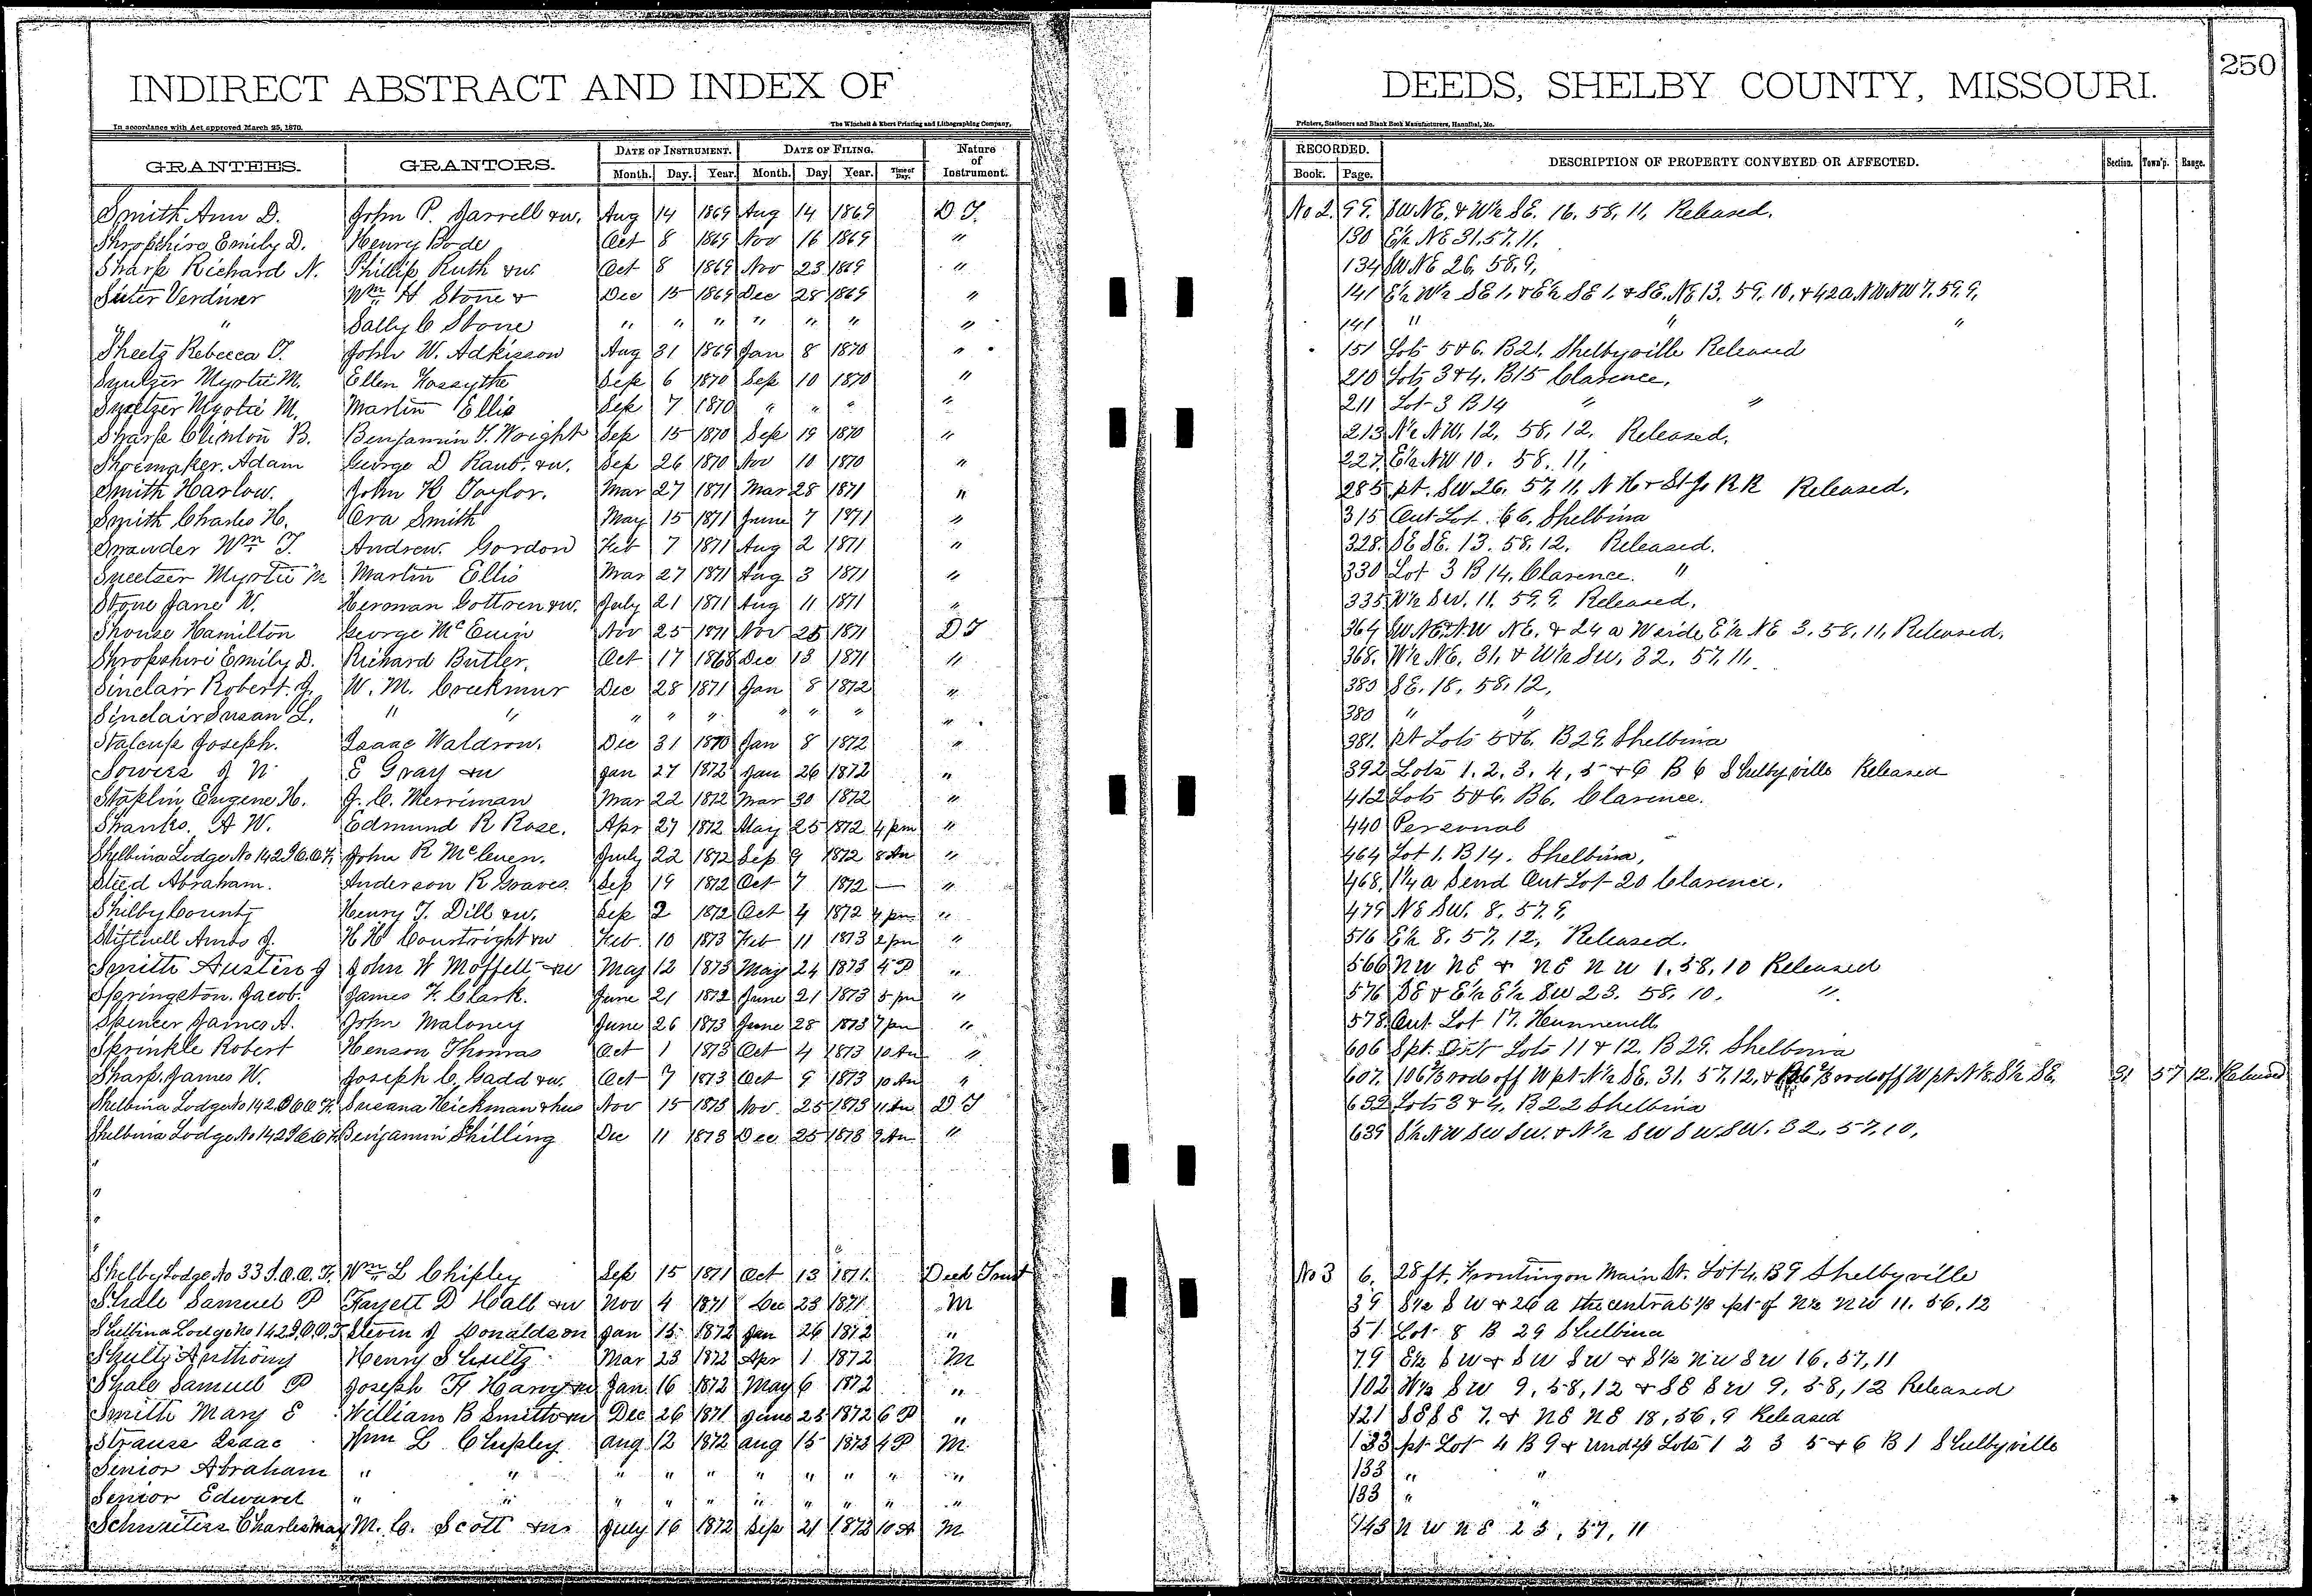 INDIRECT ABSTRACT AND INDEX OF DEEDS, SHELBY COUNTY, MISSOURI. 250
In accordance with Act approved March 25, 1870. The Winchell & Ebert Printing and Lithographing Company, Printers, Stationers and Blank Book Manufacturers, Hannibal, Mo.
GRANTEES. GRANTORS. DATE OF INSTRUMENT. DATE OF FILING. Nature of Instrument. RECORDED. DESCRIPTION OF PROPERTY CONVEYED OR AFFECTED. Section. Town'p. Range.
Month. Day. Year. Month. Day Year. Time of Day. Book. Page.
Smith Ann D. John P. Jarrell & w. Aug 14 1869 Aug 14 1869 D T. No 2. 99. SW NE. & W½ SE. 16. 58, 11, Released.
Shropshire Emily D. Henry Bode Oct 8 1869 Nov 16 1869 " 130 E½ NE 31, 57, 11.
Sharp Richard N. Phillip Ruth & w Oct 8 1869 Nov 23 1869 " 134 SW NE 26, 58, 9,
Suter Verdiner Wm H Stone & Dec 15 1869 Dec 28 1869 " 141 E½ W½ SE 1, & E½ SE 1, & SE. NE 13. 59, 10, & 42 a NW NW 7, 59, 9,
" Sally C Stone " " " " " " " 141 " " "
Sheetz Rebecca T. John W. Adkisson Aug 31 1869 Jan 8 1870 " 151 Lots 5 & 6. B 21, Shelbyville Released
Myrtie M. Ellen Forsythe Sep 6 1870 Sep 10 1870 " 210 Lots 3 & 4. B 15 Clarence,
Myrtie M. Martin Ellis Sep 7 1870 " " " " 211 Lot 3 B 14 " "
Sharp Clinton B. Benjamin F. Wright Sep 15 1870 Sep 19 1870 " 213 N½ NW, 12, 58, 12, Released,
Shoemaker. Adam George D Raub. & w. Sep 26 1870 Nov 10 1870 " 227. E½ NW 10. 58. 11,
Smith Harlow. John H Taylor. Mar 27 1871 Mar 28 1871 " 285 pt. SW 26, 57, 11, N H & St Jo RR Released.
Smith Charles H. Ora Smith May 15 1871 June 7 1871 " 315 Out Lot 66, Shelbina
Wm T. Andrew Gordon Feb 7 1871 Aug 2 1871 " 328. SE SE. 13. 58, 12. Released.
Myrtie M Martin Ellis Mar 27 1871 Aug 3 1871 " 330 Lot 3 B 14, Clarence. "
Stone Jane W. Herman & w. July 21 1871 Aug 11 1871 " 335 W½ SW. 11. 59, 9, Released,
Shouse Hamilton George McEuin Nov 25 1871 Nov 25 1871 D T 364 SW NE & NW NE. & 24 a W side E½ NE 3. 58, 11, Released,
Shropshire Emily D. Richard Butler. Oct 17 1868 Dec 13 1871 " 368. W½ NE, 31, & W½ SW, 32, 57, 11,
Sinclair Robert. J. W. M. Creekmur Dec 28 1871 Jan 8 1872 " 380 SE. 18, 58, 12,
Sinclair Susan L. " " " " " " " " " 380 " "
Stalcup Joseph. Isaac Waldron. Dec 31 1870 Jan 8 1872 " 381. pt Lots 5 & 6. B 29, Shelbina
Sowers J N E Gray & w Jan 27 1872 Jan 26 1872 " 392 Lots 1, 2, 3, 4, 5 & 6 B 6 Shelbyville Released
Staplin Eugene H. J. C. Merriman Mar 22 1872 Mar 30 1872 " 412 Lots 5 & 6. B 6. Clarence.
Shanks. A W. Edmund R Rose. Apr 27 1872 May 25 1872 4 pm " 440 Personal
Shelbina Lodge No 142 I.O.O.F. John R McCleuen. July 22 1872 Sep 9 1872 8 Am " 464 Lot 1. B 14. Shelbina,
Steed Abraham. Anderson R Graves Sep 19 1872 Oct 7 1872 — " 468. 1¼ a S end Out Lot 20 Clarence.
Shelby County Henry T. Dill & w. Sep 2 1872 Oct 4 1872 4 pm " 479 NE SW. 8, 57, 9,
Amos J. H H Courtright & w Feb. 10 1873 Feb 11 1873 2 pm " 516 E½ 8, 57, 12, Released.
Smith Austin J John W Moffett & w May 12 1873 May 24 1873 4 P " 566 NW NE & NE NW 1, 58, 10 Released
Springston. Jacob. James F. Clark. June 21 1872 June 21 1873 5 pm " 576 SE & E½ E½ SW 23. 58, 10. "
Spencer James A. John Maloney June 26 1873 June 28 1873 7 pm " 578. Out Lot 17. Hunnewell
Sprinkle Robert Henson Thomas Oct 1 1873 Oct 4 1873 10 Am " 606 S pt. Lots 11 & 12, B 29. Shelbina
Sharp. James W. Joseph C, Gadd & w. Oct 7 1873 Oct 9 1873 10 Am " 607. 106⅔ rods off W pt N½ SE. 31. 57, 12, & rods off W pt N½ S½ SE. 31 57 12. Released
Shelbina Lodge No 142 I O O F. Susana Hickman & hus Nov 15 1873 Nov. 25 1873 11 Am D T 632 Lots 3 & 4, B 22 Shelbina
Shelbina Lodge No 142 I O O F. Benjamin Shilling Dec 11 1873 Dec 25 1873 9 Am " 639 S½ NW SW SW. & N½ SW SW SW. 32, 57, 10,
Shelby Lodge No 33 I.O.O.F. Wm L Chipley Sep 15 1871 Oct 13 1871. Deed Trust No 3 6. 28 ft. Fronting on Main St. Lot 4. B 9 Shelbyville
Shale Samuel P Fayett D Hall & w Nov 4 1871 Dec 23 1871 M 39 S½ SW & 26 a the central ⅓ pt of N½ NW 11. 56, 12
Shelbina Lodge No 142 I.O.O.F Steven J Donaldson Jan 15 1872 Jan 26 1872 " 51 Lot 8 B 29 Shelbina
Shultz Anthony Henry Shultz Mar 23 1872 Apr 1 1872 M 79 E½ SW & SW SW & S½ NW SW 16, 57, 11
Shale Samuel P Joseph F Harvy & w Jan 16 1872 May 6 1872 " 102 W½ SW 9, 58, 12 & SE SW 9, 58, 12 Released
Smith Mary E William B Smith & w Dec 26 1871 June 25 1872 6 P " 121 SE SE 7. & NE NE 18, 56, 9 Released
Strauss Isaac Wm L Chipley Aug 12 1872 Aug 15 1872 4 P M. 133 pt Lot 4 B 9 & Und ⅓ Lots 1 2 3 5 & 6 B 1 Shelbyville
Senior Abraham " " " " " " " " " " 133 " "
Senior Edward " " " " " " " " " " 133 " "
Charles May M. C. Scott & w July 16 1872 Sep 21 1872 10 A M 143 NW NE 23, 57, 11